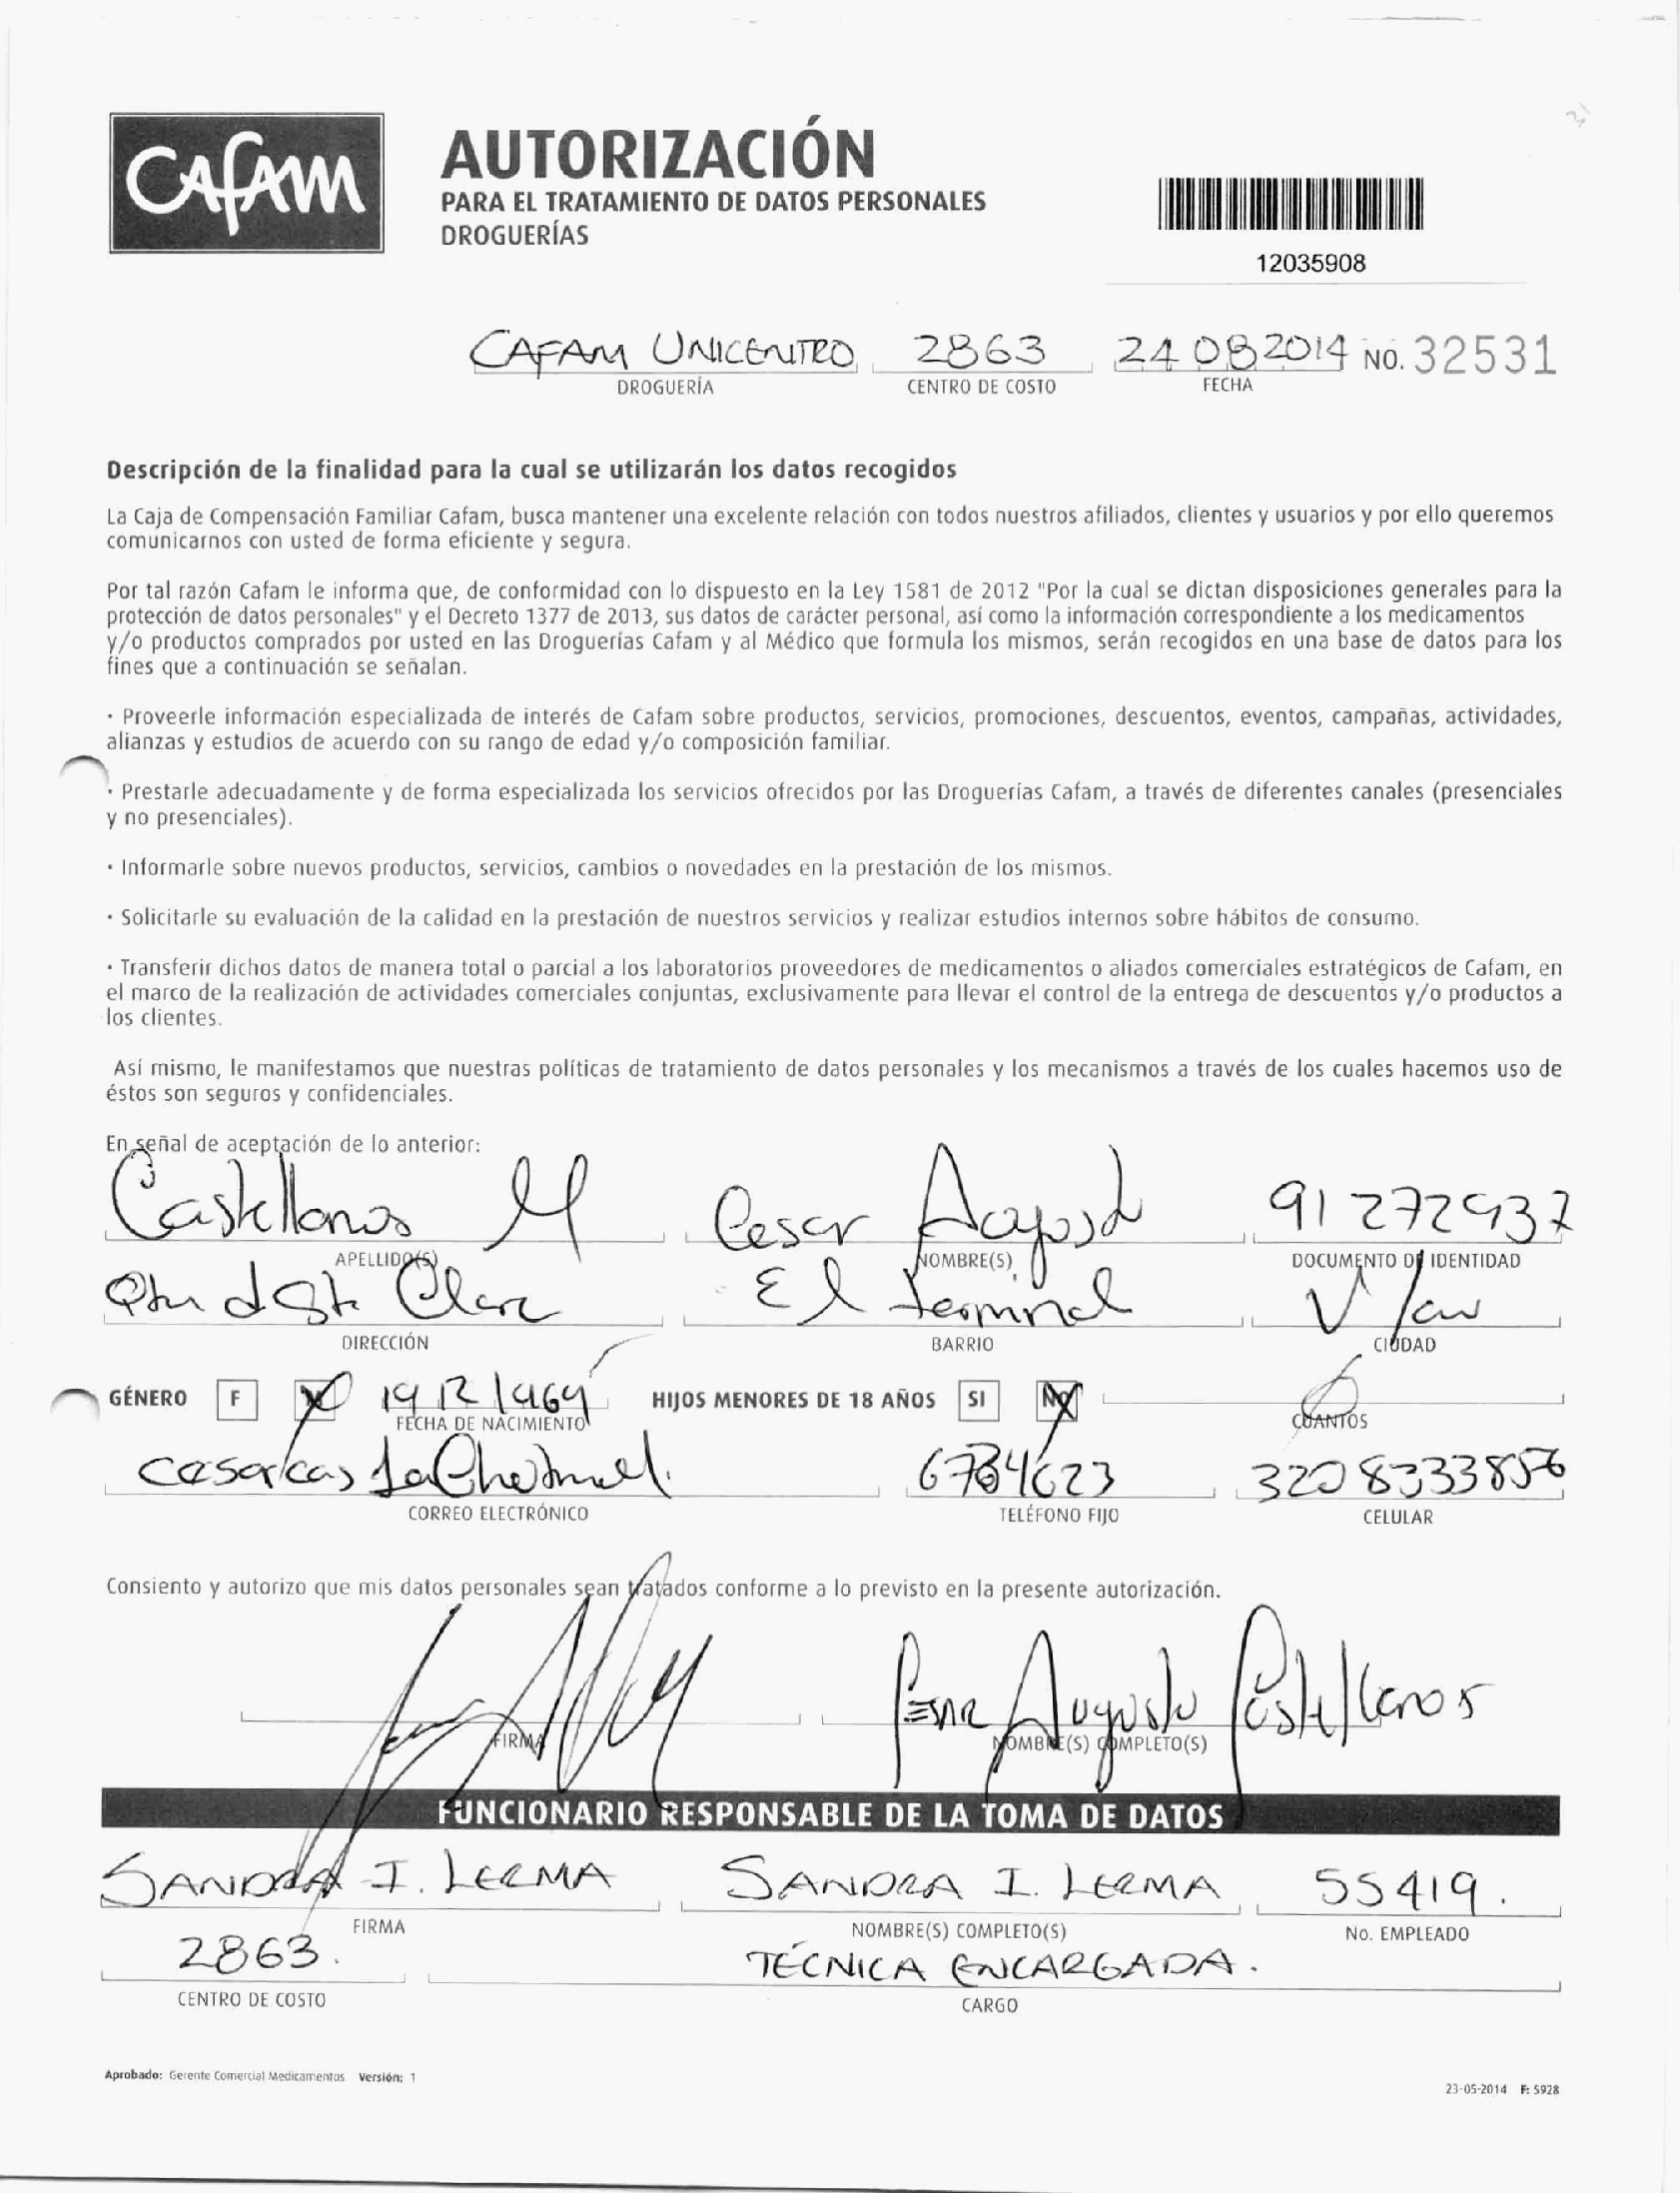 CAFAM
AUTORIZACIÓN
PARA EL TRATAMIENTO DE DATOS PERSONALES
DROGUERÍAS
12035908
CAFAM UNICENTRO 2863 24 08 2014 NO. 32531
DROGUERÍA CENTRO DE COSTO FECHA
Descripción de la finalidad para la cual se utilizarán los datos recogidos
La Caja de Compensación Familiar Cafam, busca mantener una excelente relación con todos nuestros afiliados, clientes y usuarios y por ello queremos
comunicarnos con usted de forma eficiente y segura.
Por tal razón Cafam le informa que, de conformidad con lo dispuesto en la Ley 1581 de 2012 "Por la cual se dictan disposiciones generales para la
protección de datos personales" y el Decreto 1377 de 2013, sus datos de carácter personal, así como la información correspondiente a los medicamentos
y/o productos comprados por usted en las Droguerías Cafam y al Médico que formula los mismos, serán recogidos en una base de datos para los
fines que a continuación se señalan.
· Proveerle información especializada de interés de Cafam sobre productos, servicios, promociones, descuentos, eventos, campañas, actividades,
alianzas y estudios de acuerdo con su rango de edad y/o composición familiar.
· Prestarle adecuadamente y de forma especializada los servicios ofrecidos por las Droguerías Cafam, a través de diferentes canales (presenciales
y no presenciales).
· Informarle sobre nuevos productos, servicios, cambios o novedades en la prestación de los mismos.
· Solicitarle su evaluación de la calidad en la prestación de nuestros servicios y realizar estudios internos sobre hábitos de consumo.
· Transferir dichos datos de manera total o parcial a los laboratorios proveedores de medicamentos o aliados comerciales estratégicos de Cafam, en
el marco de la realización de actividades comerciales conjuntas, exclusivamente para llevar el control de la entrega de descuentos y/o productos a
los clientes.
Así mismo, le manifestamos que nuestras políticas de tratamiento de datos personales y los mecanismos a través de los cuales hacemos uso de
éstos son seguros y confidenciales.
En señal de aceptación de lo anterior:
Castellanos M Cesar 91272937
APELLIDO(S) NOMBRE(S) DOCUMENTO DE IDENTIDAD
Clara El terminal
DIRECCIÓN BARRIO CIUDAD
GÉNERO F 19 12 1969 HIJOS MENORES DE 18 AÑOS SI NO
FECHA DE NACIMIENTO CUANTOS
3208333856
CORREO ELECTRÓNICO TELÉFONO FIJO CELULAR
Consiento y autorizo que mis datos personales sean tratados conforme a lo previsto en la presente autorización.
Cesar Augusto Castellanos
FIRMA NOMBRE(S) COMPLETO(S)
FUNCIONARIO RESPONSABLE DE LA TOMA DE DATOS
SANDRA I. LERMA SANDRA I. LERMA 55419.
FIRMA NOMBRE(S) COMPLETO(S) No. EMPLEADO
2863. TÉCNICA ENCARGADA.
CENTRO DE COSTO CARGO
Aprobado: Gerente Comercial Medicamentos Versión: 1
23-05-2014 F: 5928